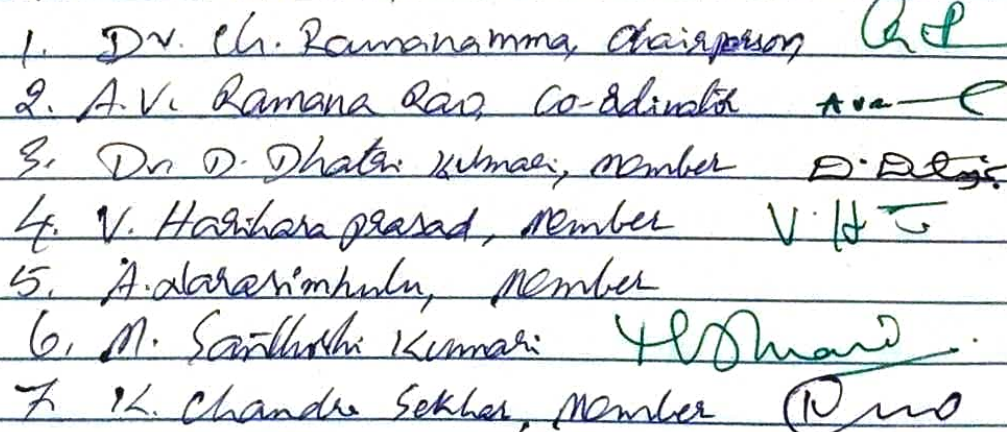 1. Dr. Ch. Ramanamma, Chairperson
2. A.V. Ramana Rao, Co-ordinator
3. Dr. D. Dhatri Kumari, member
4. V. Harihara prasad, member V. H
5. A. Narasimhulu, member
6. M. Santhoshi Kumari
7. K. Chandra Sekhar, member